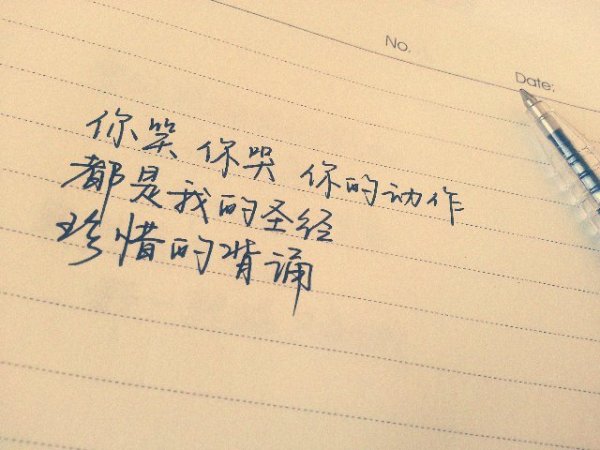 No.
Date:
你笑 你哭 你的动作
都是我的圣经
珍惜的背诵